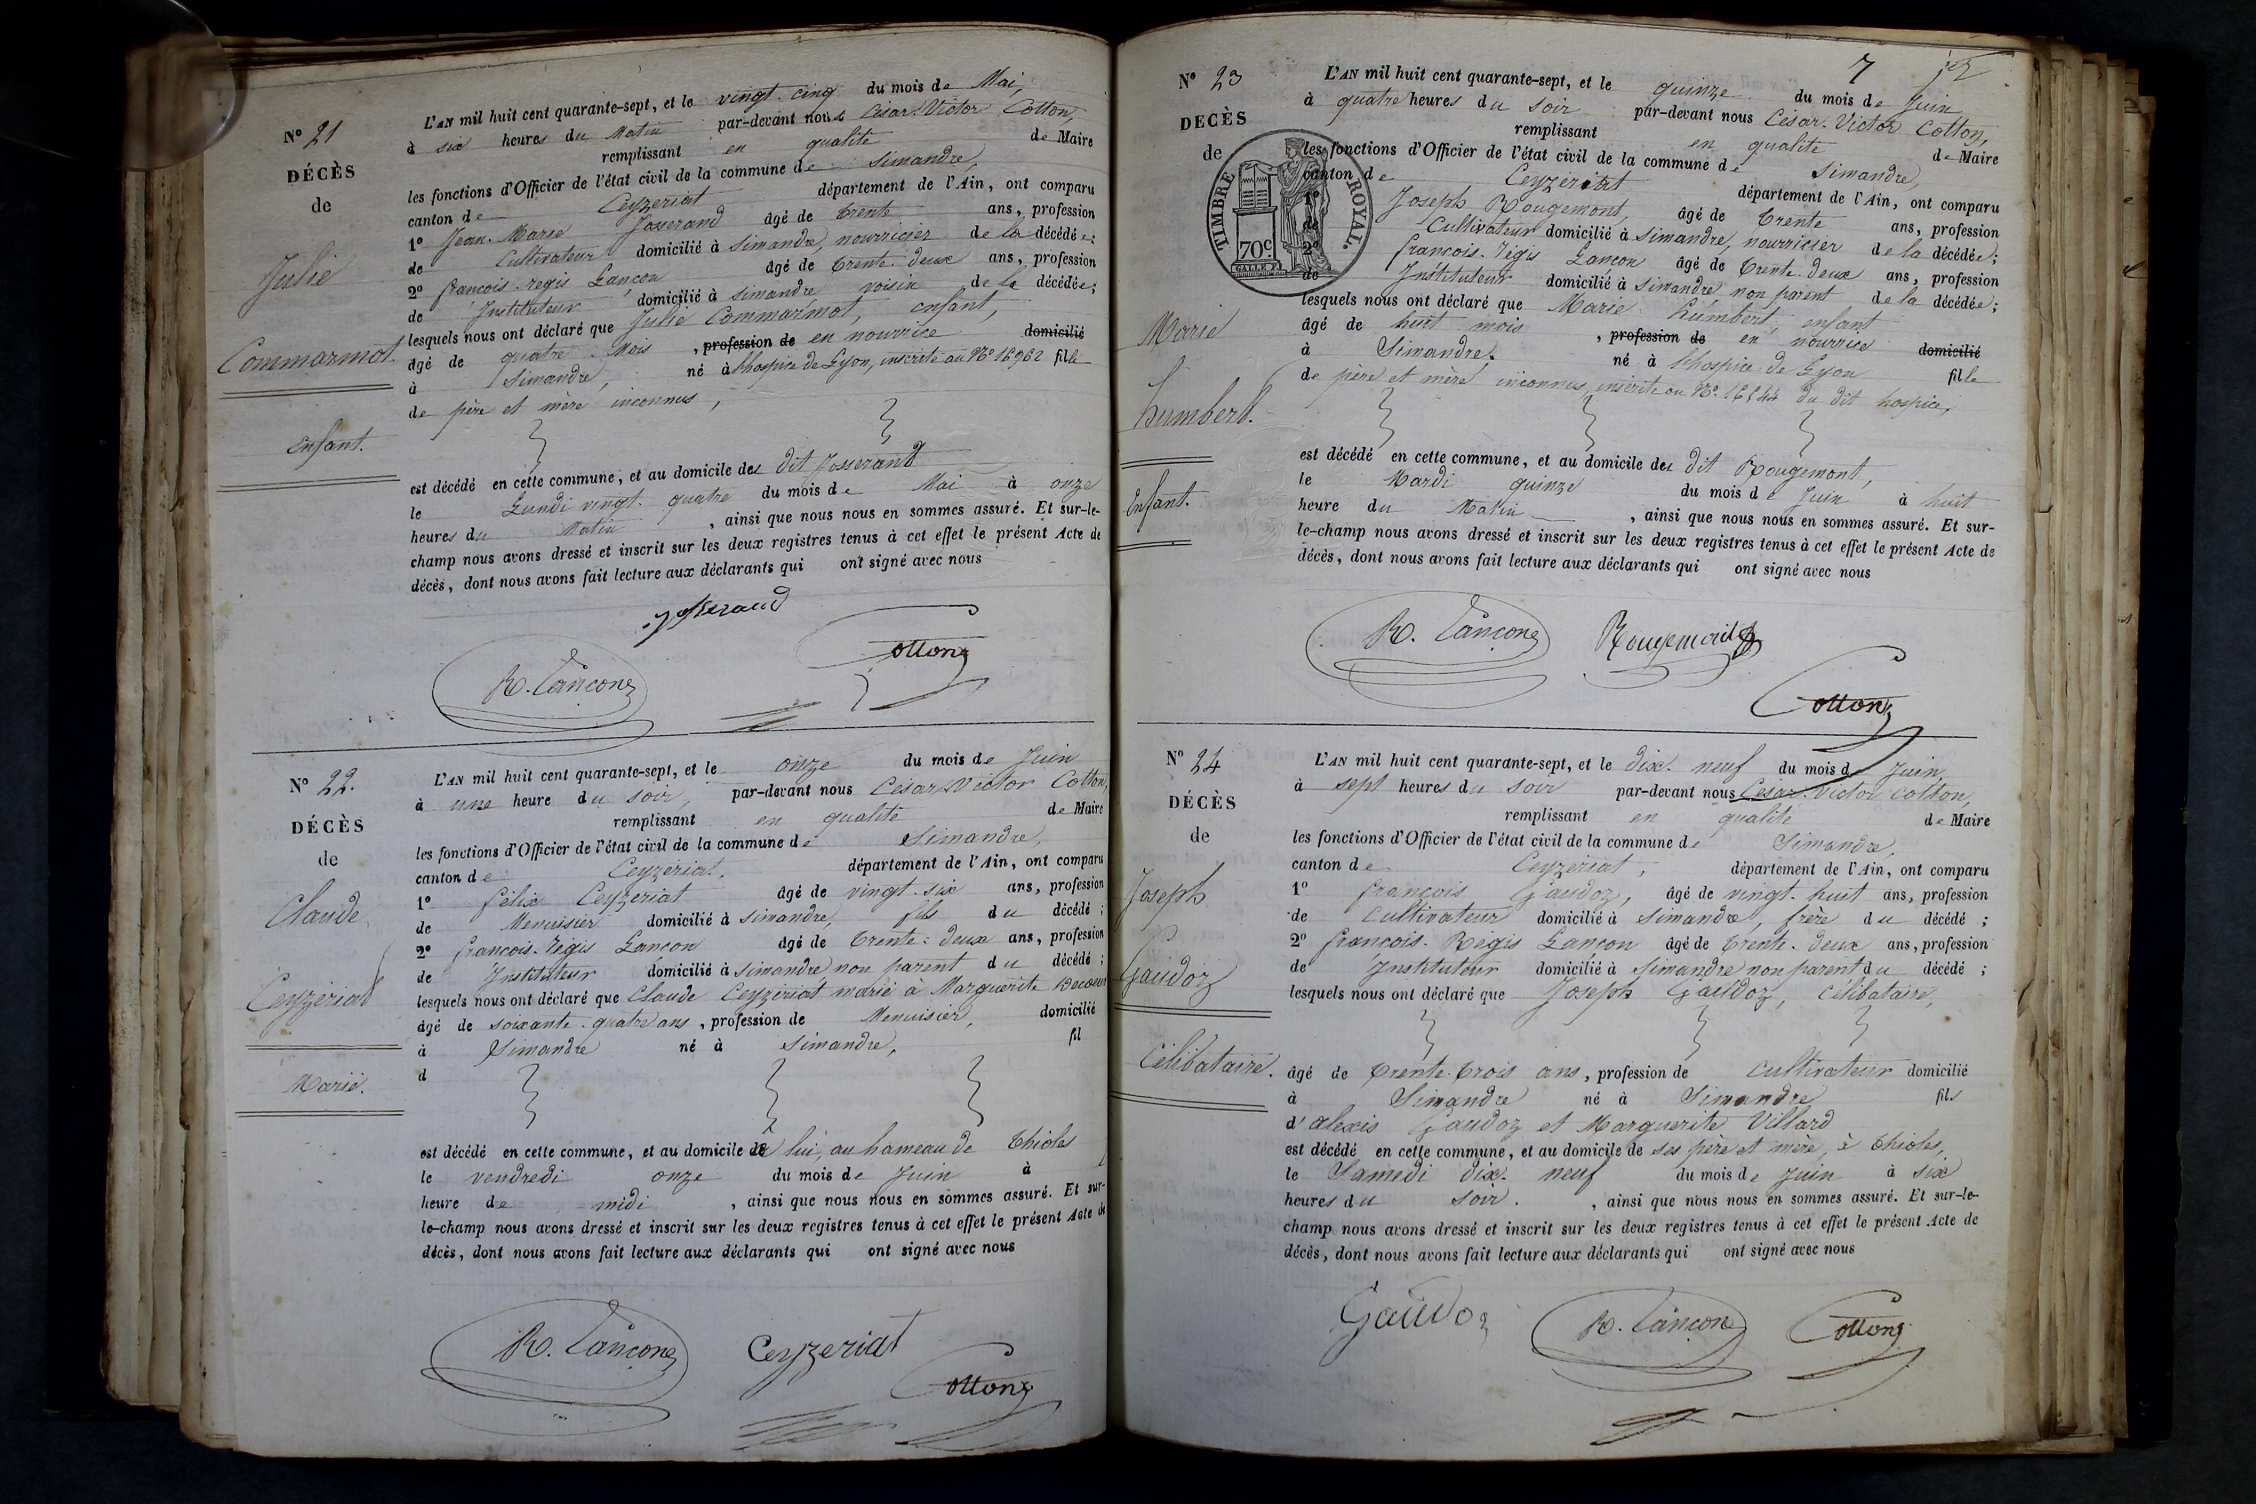 N° 21
DÉCÈS
de
Julie
Commarmot.
Enfant.
L'AN mil huit cent quarante-sept, et le vingt-cinq du mois de Mai,
à six heures du Matin par-devant nous César-Victor Cotton,
remplissant en qualité de Maire
les fonctions d'Officier de l'état civil de la commune de Simandre,
canton de Ceyzériat département de l'Ain, ont comparu
1° Jean-Marie Josserand âgé de trente ans, profession
de Cultivateur domicilié à Simandre, nourricier de la décédée;
2° francois-régis Lançon âgé de trente-deux ans, profession
de Instituteur domicilié à Simandre voisin de la décédée;
lesquels nous ont déclaré que Julie Commarmot, enfant,
âgé de quatre Mois, profession de en nourrice domicilié
à Simandre, né à l'hospice de Lyon, inscrite au N° 16962 fille
de père et mère inconnus,
est décédé en cette commune, et au domicile des dit Josserand
le Lundi vingt-quatre du mois de Mai à onze
heures du Matin, ainsi que nous nous en sommes assuré. Et sur-le-
champ nous avons dressé et inscrit sur les deux registres tenus à cet effet le présent Acte de
décès, dont nous avons fait lecture aux déclarants qui ont signé avec nous
Josserand
R. Lançon
Cotton
N° 22.
DÉCÈS
de
Claude
Ceyzériat
Marié.
L'AN mil huit cent quarante-sept, et le onze du mois de Juin
à une heure du soir, par-devant nous César-Victor Cotton,
remplissant en qualité de Maire
les fonctions d'Officier de l'état civil de la commune de Simandre,
canton de Ceyzériat, département de l'Ain, ont comparu
1° félix Ceyzériat âgé de vingt-six ans, profession
de Menuisier domicilié à Simandre, fils du décédé;
2° francois-régis Lançon âgé de trente-deux ans, profession
de Instituteur domicilié à Simandre, non parent du décédé;
lesquels nous ont déclaré que Claude Ceyzériat marié à Marguerite
âgé de soixante-quatre ans, profession de Menuisier, domicilié
à Simandre né à Simandre, fil
d
est décédé en cette commune, et au domicile de lui, au hameau de Thioles
le vendredi onze du mois de Juin à
heure de midi, ainsi que nous nous en sommes assuré. Et sur-
le-champ nous avons dressé et inscrit sur les deux registres tenus à cet effet le présent Acte de
décès, dont nous avons fait lecture aux déclarants qui ont signé avec nous
R. Lançon
Ceyzeriat
Cotton
7
N° 23
DECÈS
de
Marie
humbert.
Enfant.
TIMBRE ROYAL.
70c.
L'AN mil huit cent quarante-sept, et le quinze du mois de Juin
à quatre heures du soir par-devant nous César-Victor Cotton,
remplissant en qualité de Maire
les fonctions d'Officier de l'état civil de la commune de Simandre,
canton de Ceyzériat département de l'Ain, ont comparu
1° Joseph Rougemont, âgé de trente ans, profession
de Cultivateur domicilié à Simandre, nourricier de la décédée;
2° francois-régis Lançon âgé de trente-deux ans, profession
de Instituteur domicilié à Simandre non parent de la décédée;
lesquels nous ont déclaré que Marie humbert, enfant
âgé de huit mois, profession de en nourrice domicilié
à Simandre. né à l'hospice de Lyon fille
de père et mère inconnus, inscrite au N° du dit hospice,
est décédé en cette commune, et au domicile des dit Rougemont,
le Mardi quinze du mois de Juin à huit
heure du Matin, ainsi que nous nous en sommes assuré. Et sur-
le-champ nous avons dressé et inscrit sur les deux registres tenus à cet effet le présent Acte de
décès, dont nous avons fait lecture aux déclarants qui ont signé avec nous
R. Lançon
Rougemont
Cotton
N° 24
DÉCÈS
de
Joseph
Gaudoz
Célibataire.
L'AN mil huit cent quarante-sept, et le dix-neuf du mois de Juin,
à sept heures du soir par-devant nous César-Victor Cotton,
remplissant en qualité de Maire
les fonctions d'Officier de l'état civil de la commune de Simandre,
canton de Ceyzériat, département de l'Ain, ont comparu
1° françois Gaudoz, âgé de vingt-huit ans, profession
de cultivateur domicilié à Simandre, frère du décédé;
2° françois-Régis Lançon âgé de trente-deux ans, profession
de Instituteur domicilié à Simandre non parent du décédé;
lesquels nous ont déclaré que Joseph Gaudoz, célibataire,
âgé de trente-trois ans, profession de cultivateur domicilié
à Simandre né à Simandre fils
d'alexis Gaudoz et Marguerite Villard
est décédé en cette commune, et au domicile de ses père et mère, à Thioles,
le Samedi dix-neuf du mois de Juin à six
heures du soir., ainsi que nous nous en sommes assuré. Et sur-le-
champ nous avons dressé et inscrit sur les deux registres tenus à cet effet le présent Acte de
décès, dont nous avons fait lecture aux déclarants qui ont signé avec nous
Gaudoz
R. Lançon
Cotton